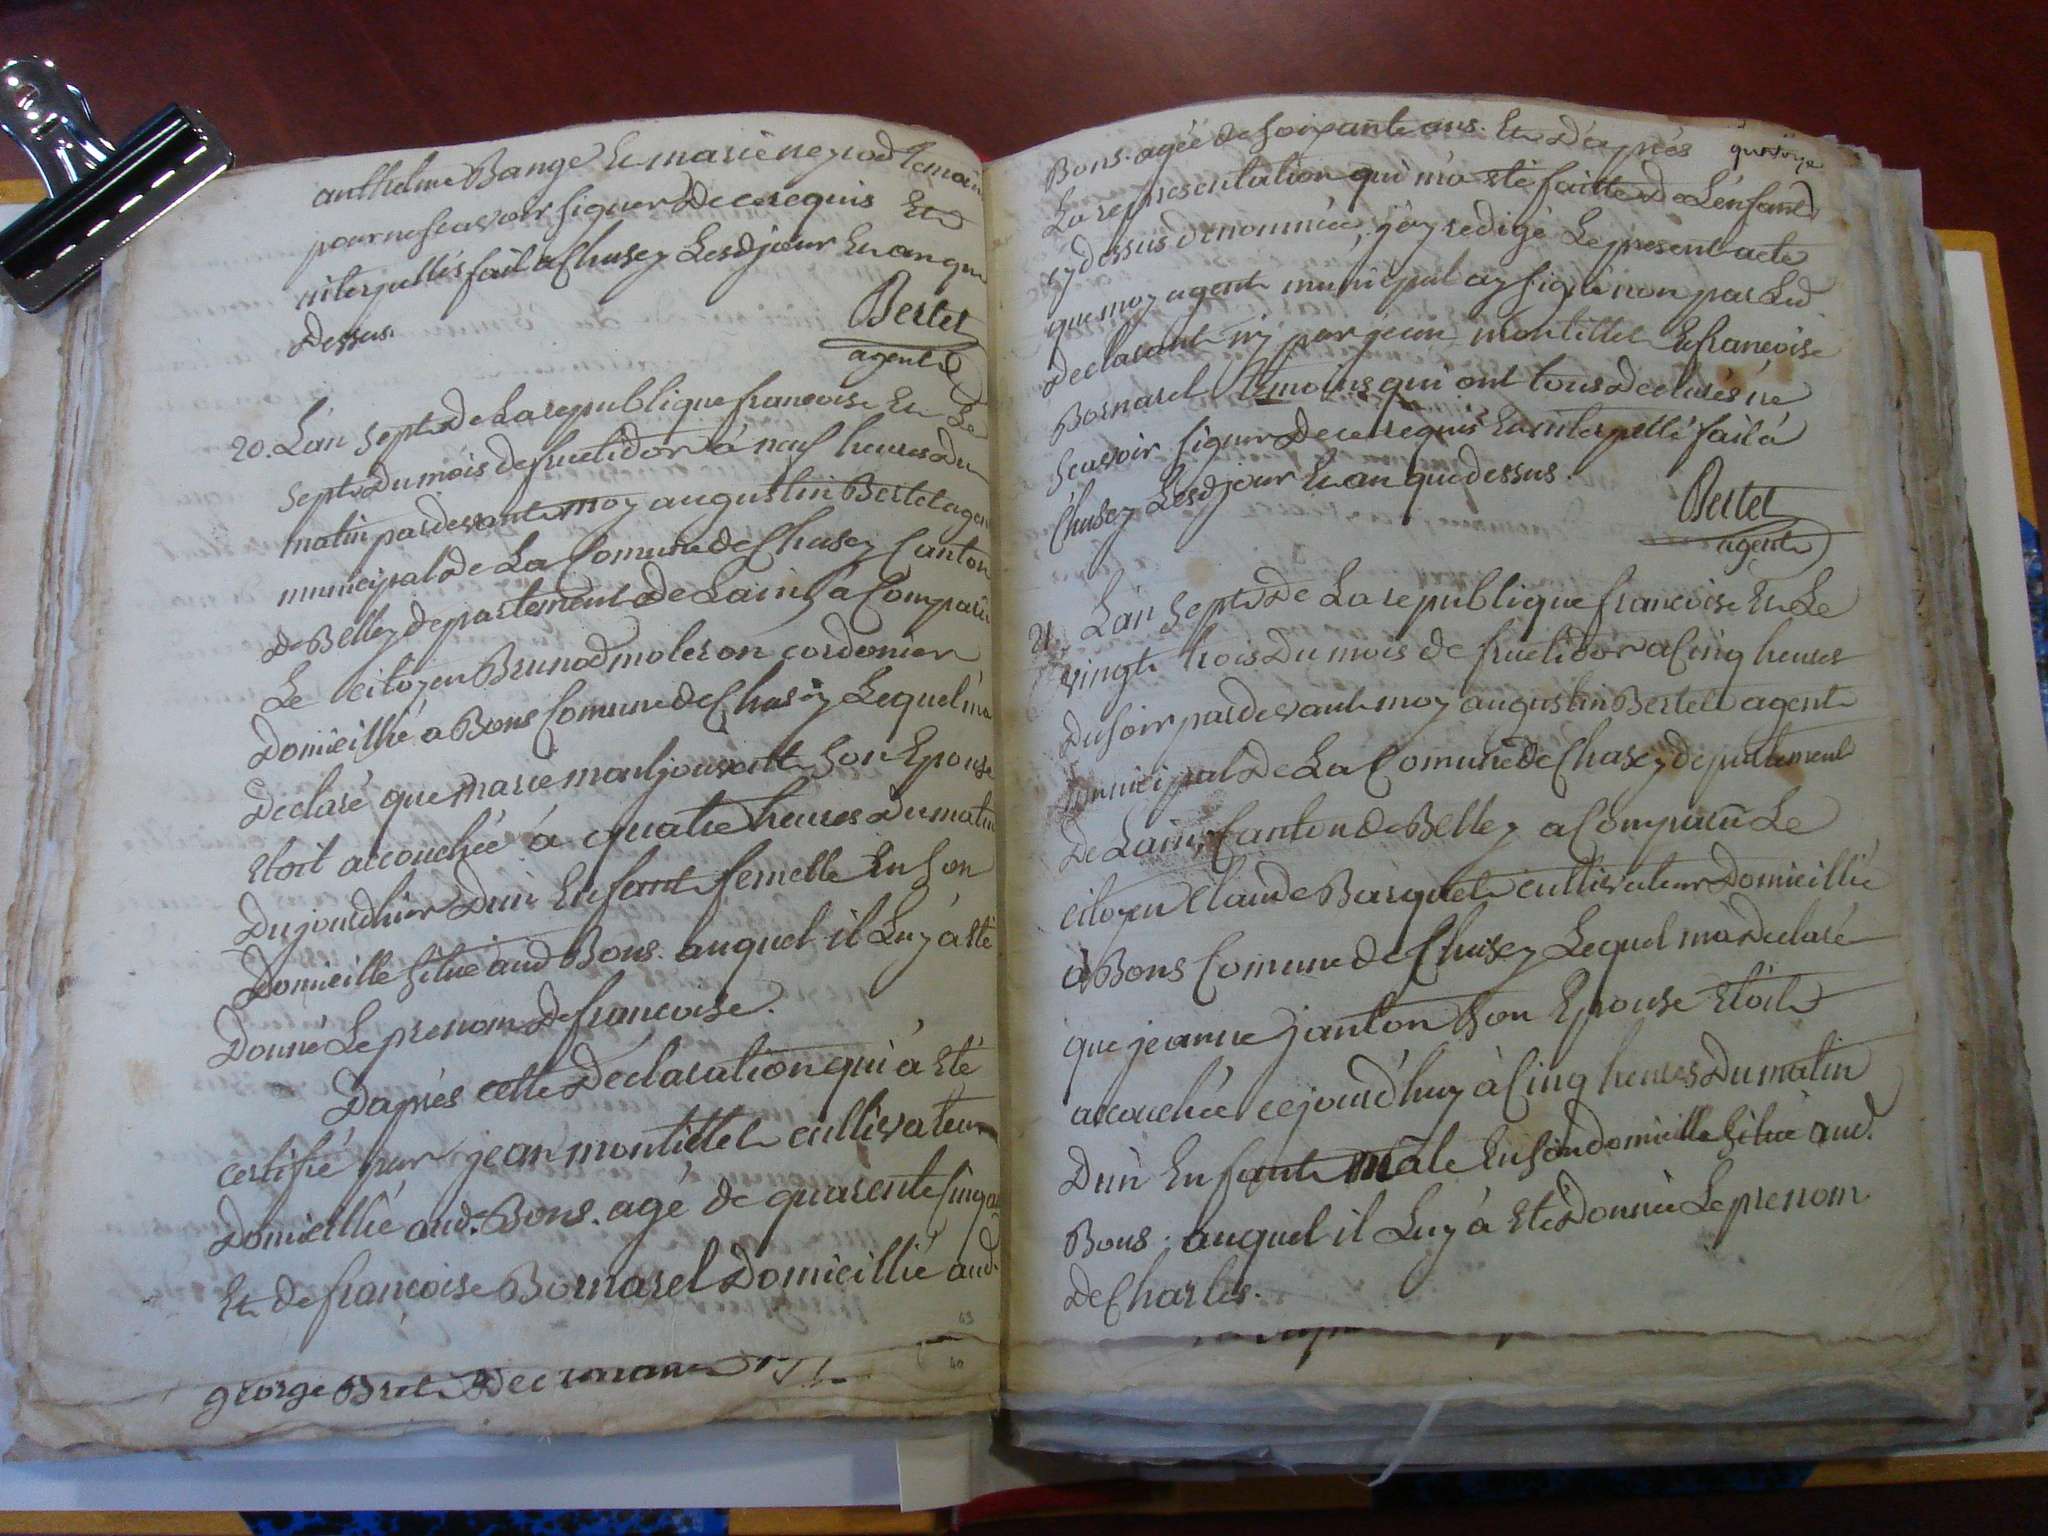 anthelme Bange Et marie neyrod temoin
pour ne scavoir signer de ce requis Et
interpellés fait a Chasey Lesd jour Et an que
dessus.
Bertet
agent
20. L'an sept de La republique francoise Et Le
sept du mois de fructidor à neuf heures du
matin pardevant moy augustin Bertet agent
municipal de La Comune de Chasey Canton
de Belley departement de Lain, a Comparu
Le citoyen Brunod moleron cordonier
domicillié a Bons Comune de Chasey Lequel m'a
declaré que marie montjouvent son Epouse
Etoit accouchée à quatre heures du matin
dujourdhier d'un Enfant femelle En son
domicille situé aud Bons. auquel il Luy à eté
donné Le prenom de francoise.
D'aprés cette declaration qui à eté
certifié par jean montittet cultivateur
domicillié aud. Bons. agé de quarente cinq ans
Et de francoise Bornarel domicillié aud
43
40
george Bret
quatorze
Bons. agée de soixante ans. Et d'aprés
La representation qui m'a eté faitte de L'enfant
cy dessus denommée, j'ay redigé Le present acte
que moy agent municipal ay signé non par Led
declarant ny par jean montittet Et francoise
Bornarel temoins qui ont tous declarés ne
scavoir signer de ce requis Et interpellé fait à
Chasey Lesd jour Et an que dessus.
Bertet
agent
21. L'an sept de La republique francoise Et Le
vingt trois du mois de fructidor a Cinq heures
du soir pardevant moy augustin Bertet agent
municipal de La Comune de Chasey departement
de Lain, Canton de Belley a Comparu Le
citoyen Claude Barquet cultivateur domicillié
à Bons Comune de Chasey Lequel m'a declaré
que jeanne janton son Epouse Etoit
accouchée cejourd'huy à Cinq heures du matin
d'un Enfant mâle En son domicille situé aud.
Bons. auquel il Luy à Eté donné Le prenom
de Charles.